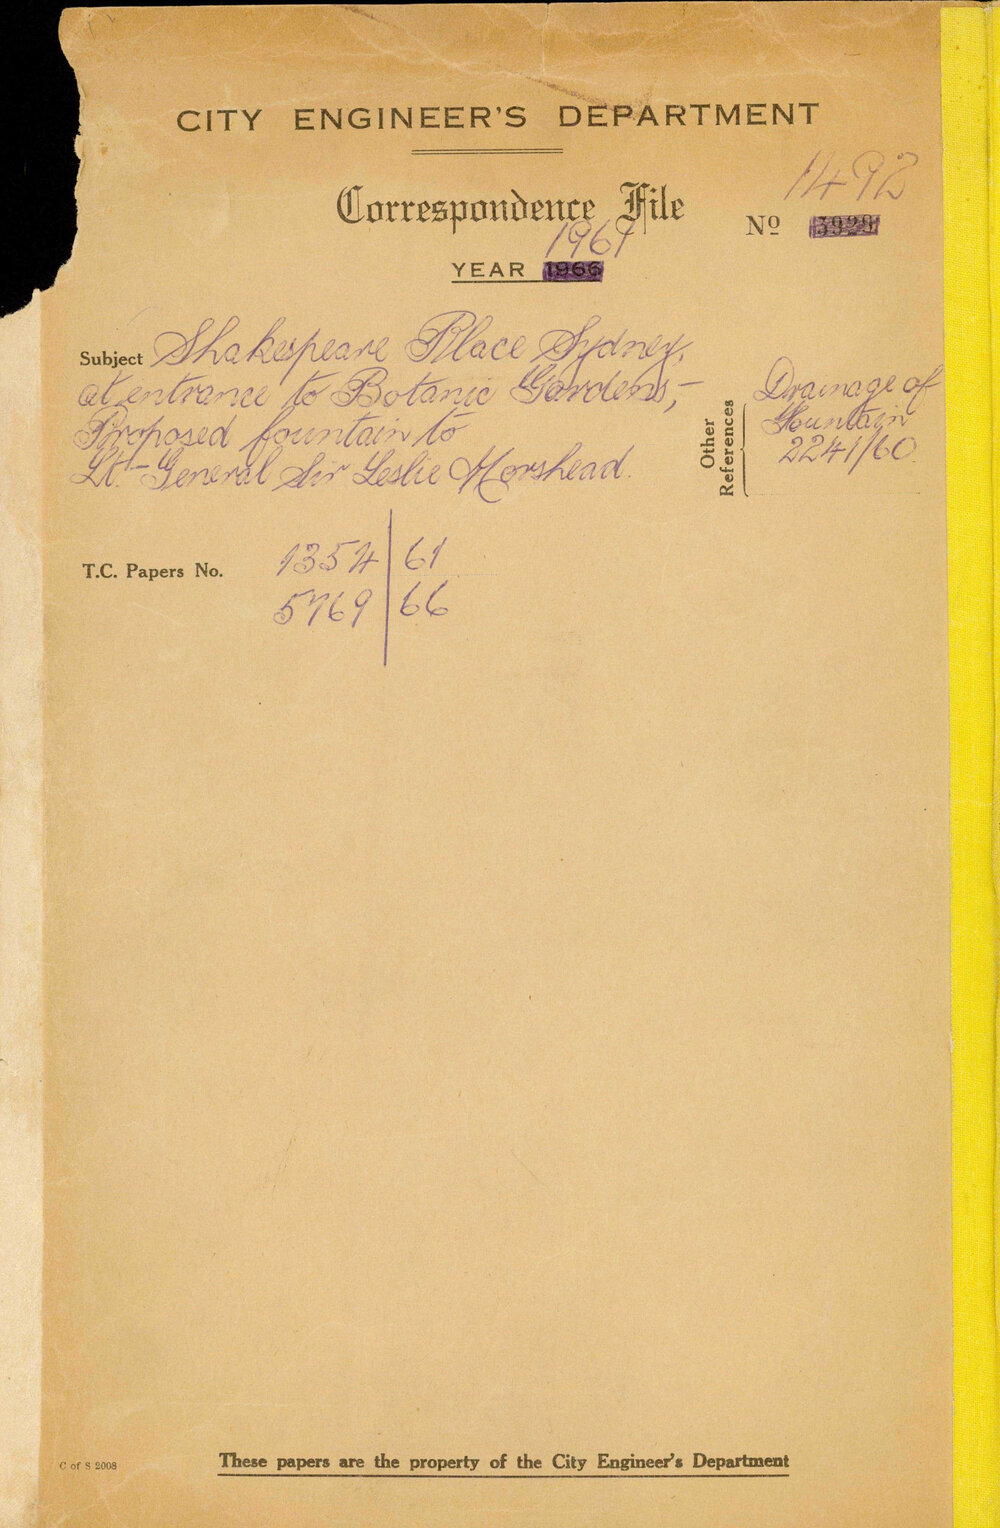 CITY ENGINEER'S DEPARTMENT
Correspondence File
1492
Nº 3929
1961
YEAR 1966
Subject Shakespeare Place Sydney,
at entrance to Botanic Gardens,-
Proposed fountain to
Lt.-General Sir Leslie Morshead.
Other References
Drainage of
Fountain
2241/60
T.C. Papers No. 1354 61
5769 66
C of S 2008
These papers are the property of the City Engineer's Department